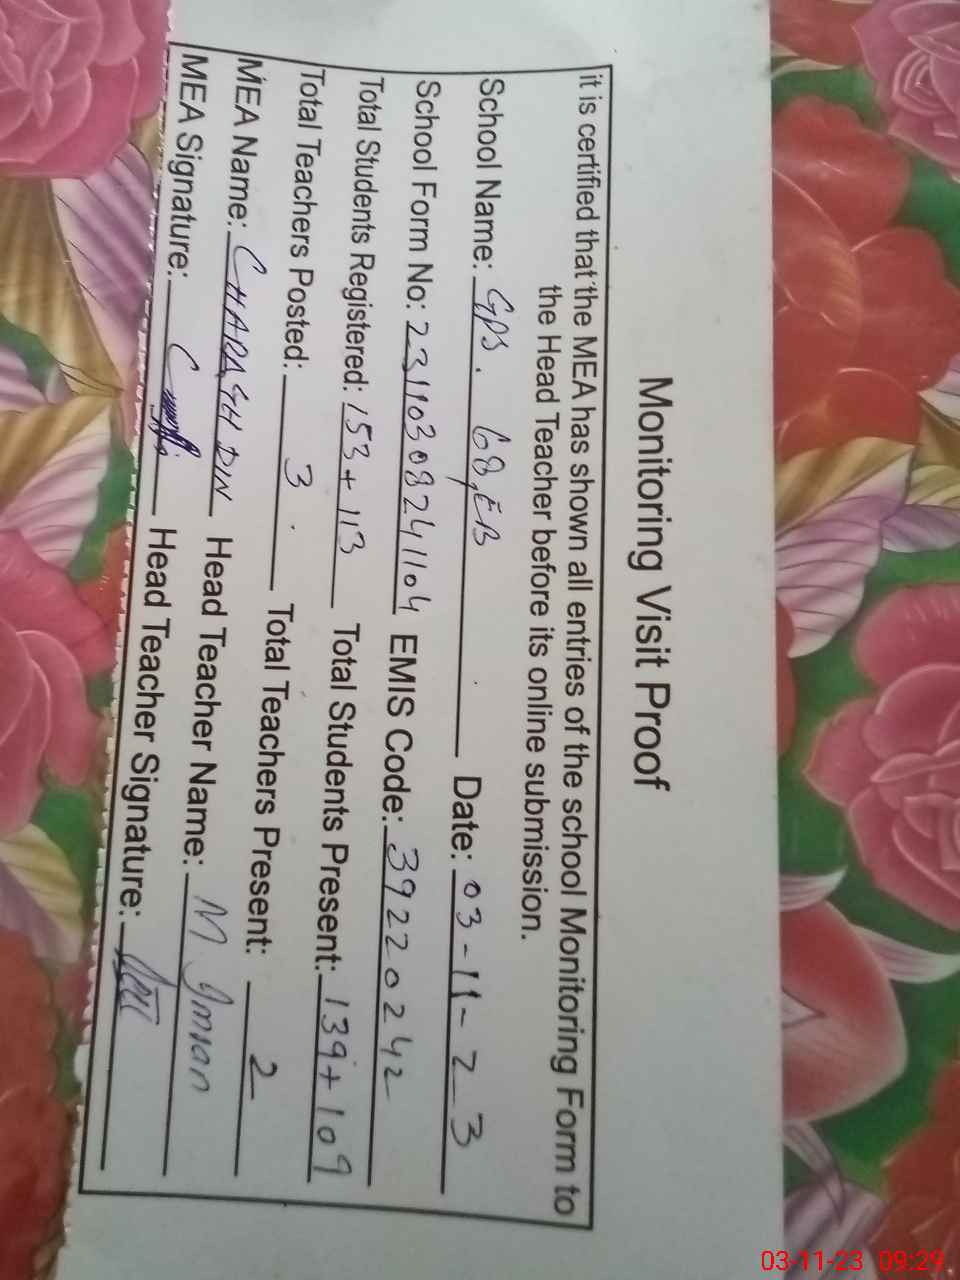 Monitoring Visit Proof
it is certified that the MEA has shown all entries of the school Monitoring Form to
the Head Teacher before its online submission.
School Name: GPS. 68,EB Date: 03-11-23
School Form No: 231103082411104 EMIS Code: 39220242
Total Students Registered: 153+113 Total Students Present: 139+109
Total Teachers Posted: 3 Total Teachers Present: 2
MEA Name: CHARAGH DIN Head Teacher Name: M Imran
MEA Signature: Head Teacher Signature:
03-11-23 09:29